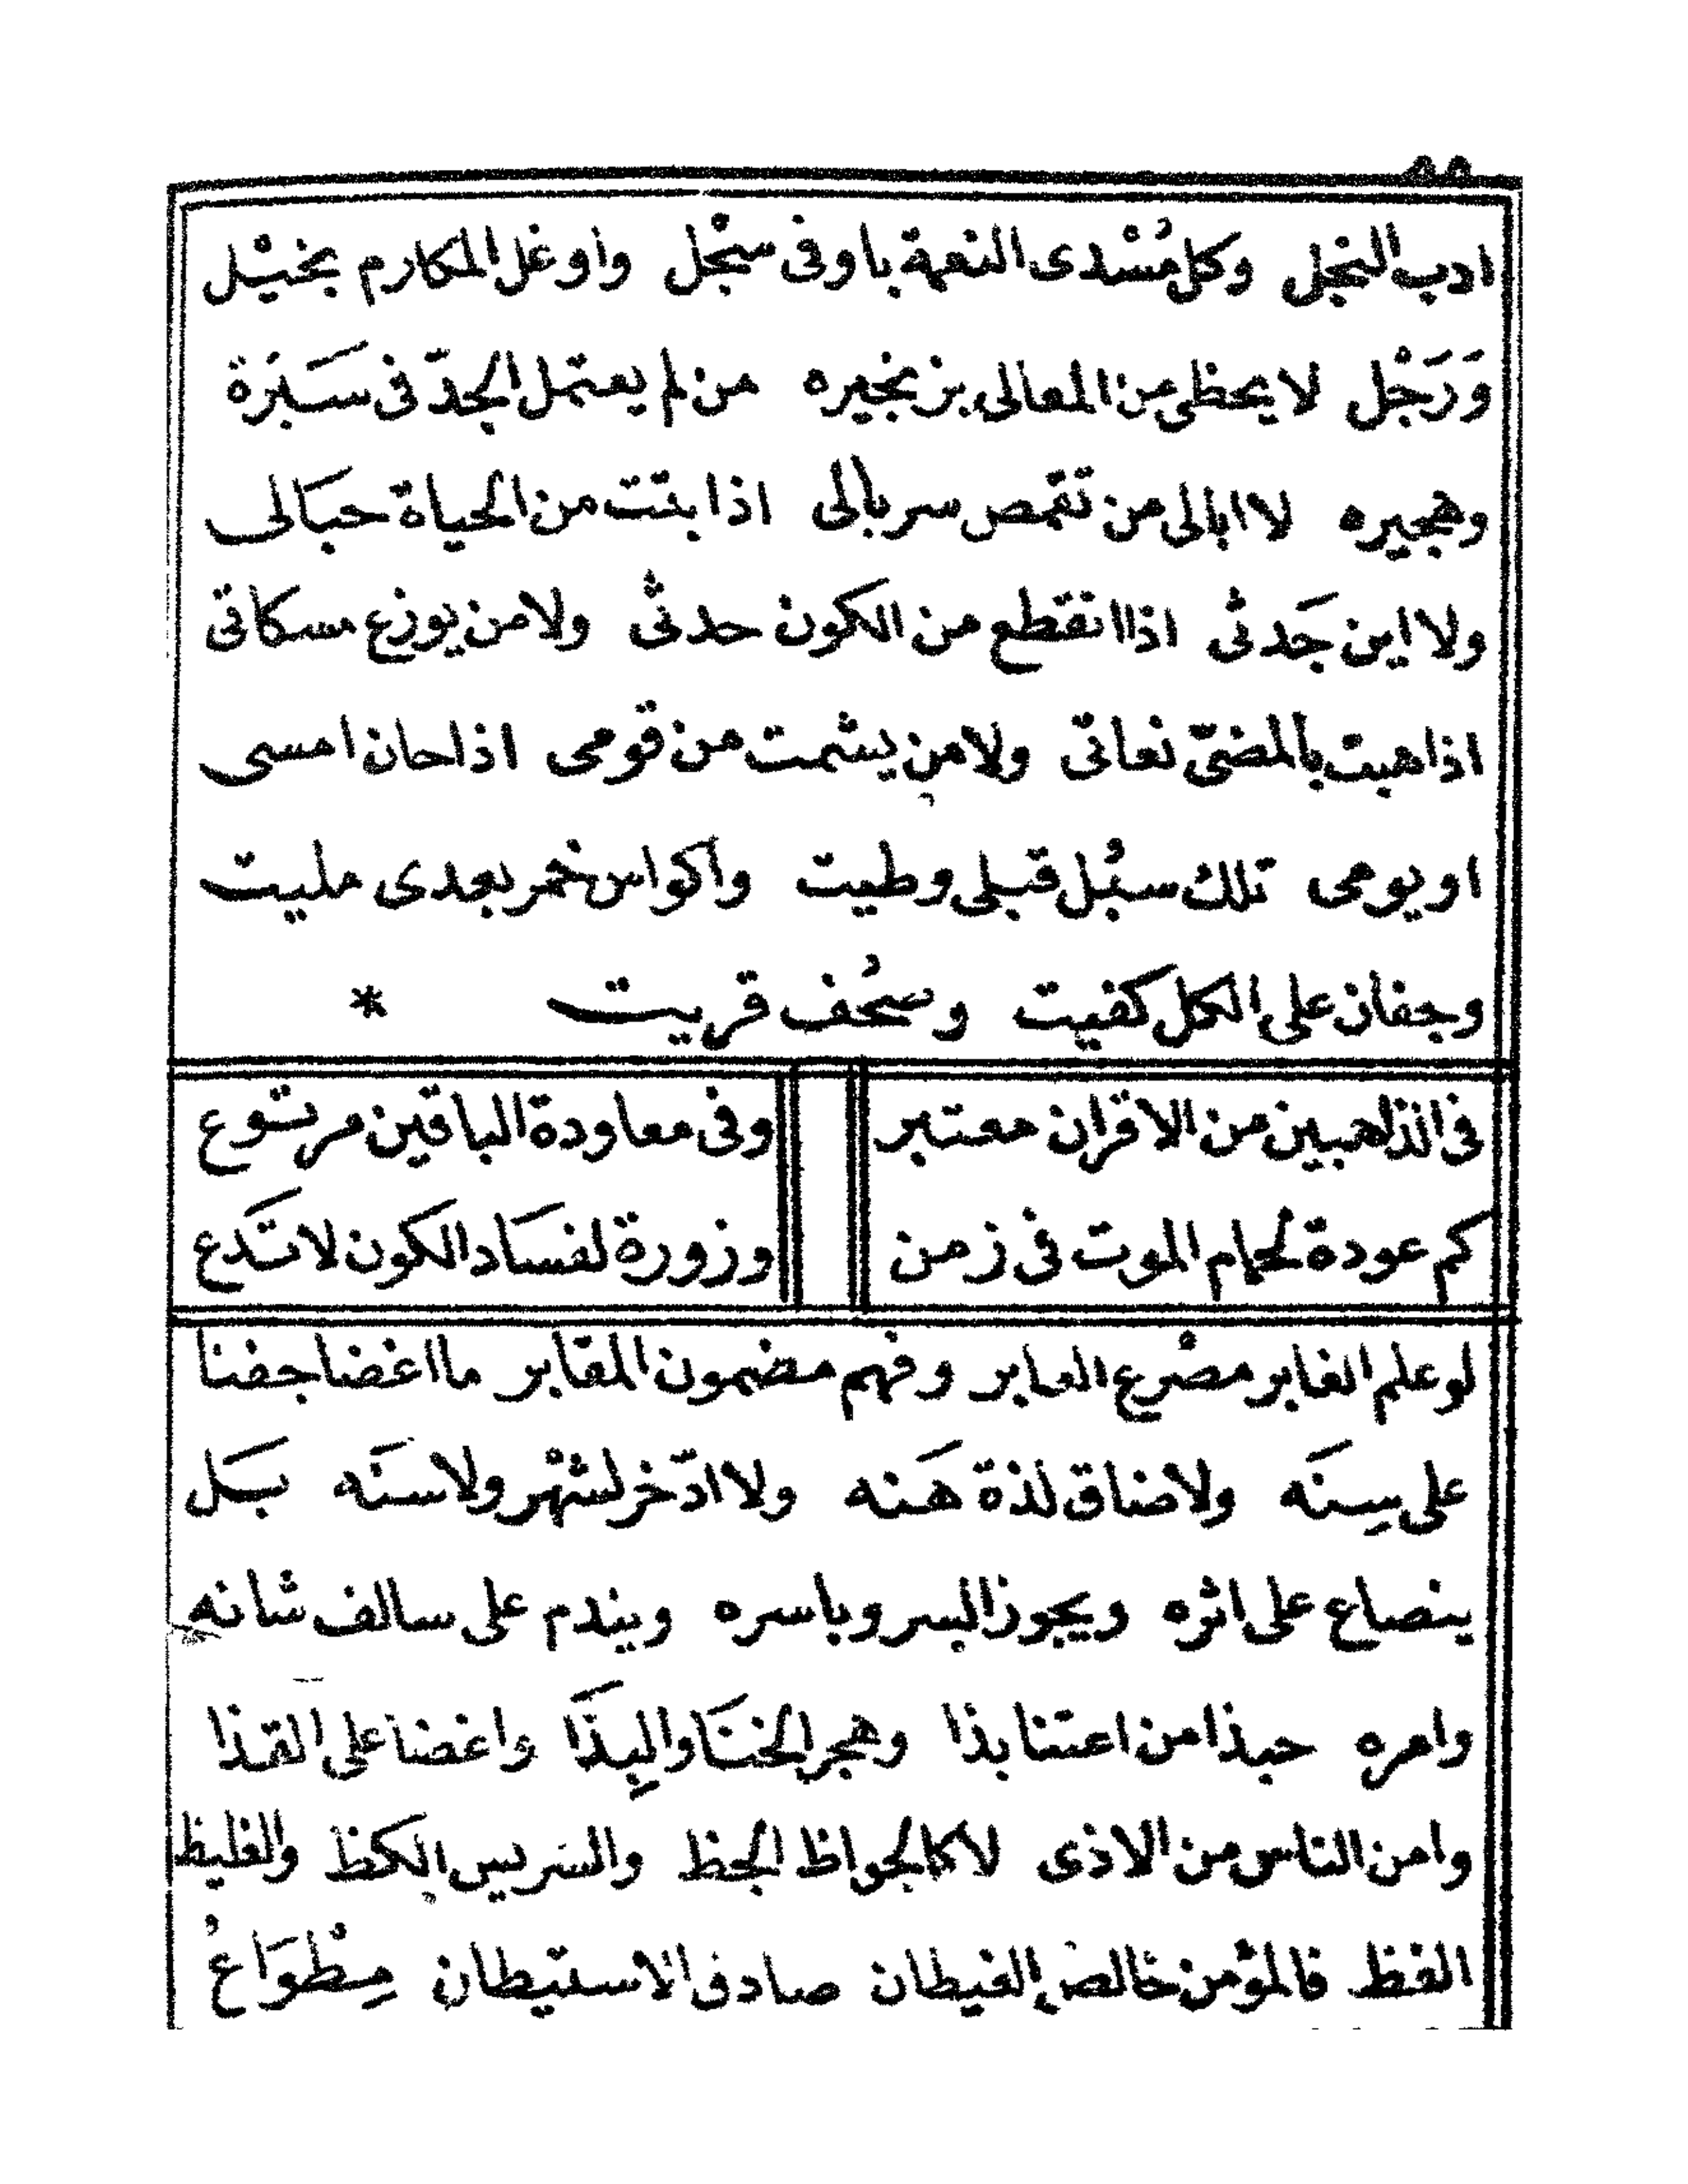 ادب النجل وكل مُسْدى النعمة باوفى سَجْل واوغل المكارم بخَيْل
وَرَجْل لا يحظى من المعالى بزنجيره من لم يعتمل الجدّ فى سَبْرة
وهجيره لا ابالى من تقمص سربالى اذا بتّت من الحياة حبَالى
ولا اين جَدثى اذا انقطع من الكون حدثى ولا من يوزع مسكاتى
اذا هبت بالمضىّ نعاتى ولا من يشمت من قومى اذا حان امسى
او يومى تلك سُبُل قبلى وطيت واكواس خمر بعدى مليت
وجفان على الكل كفيت وصُحُف قريت *
فى الذاهبين من الاقران معتبر وفى معاودة الباقين مرتوع
كم عودة لحمام الموت فى زمن وزورة لفسَاد الكون لا تَدع
لو علم الغابر مصْرع العابر وفهم مضمون المقابر ما اغضا جفنا
على سِنَه ولا ضاق لذة هَنه ولا ادّخر لشهْر ولا سنَه بَل
ينصاع على اثره ويجوز اليسر وباسره ويندم على سالف شانه
وامره حبذا من اعتنا بذا وهجر الخنَا والبِذَا واغضا على القذا
وامن الناس من الاذى لا كالجواظ الجظ والشريس الكظ والغليظ
الفظ فالمؤمن خالص الغيطان صادف الاستيطان مِطْوَاعُ